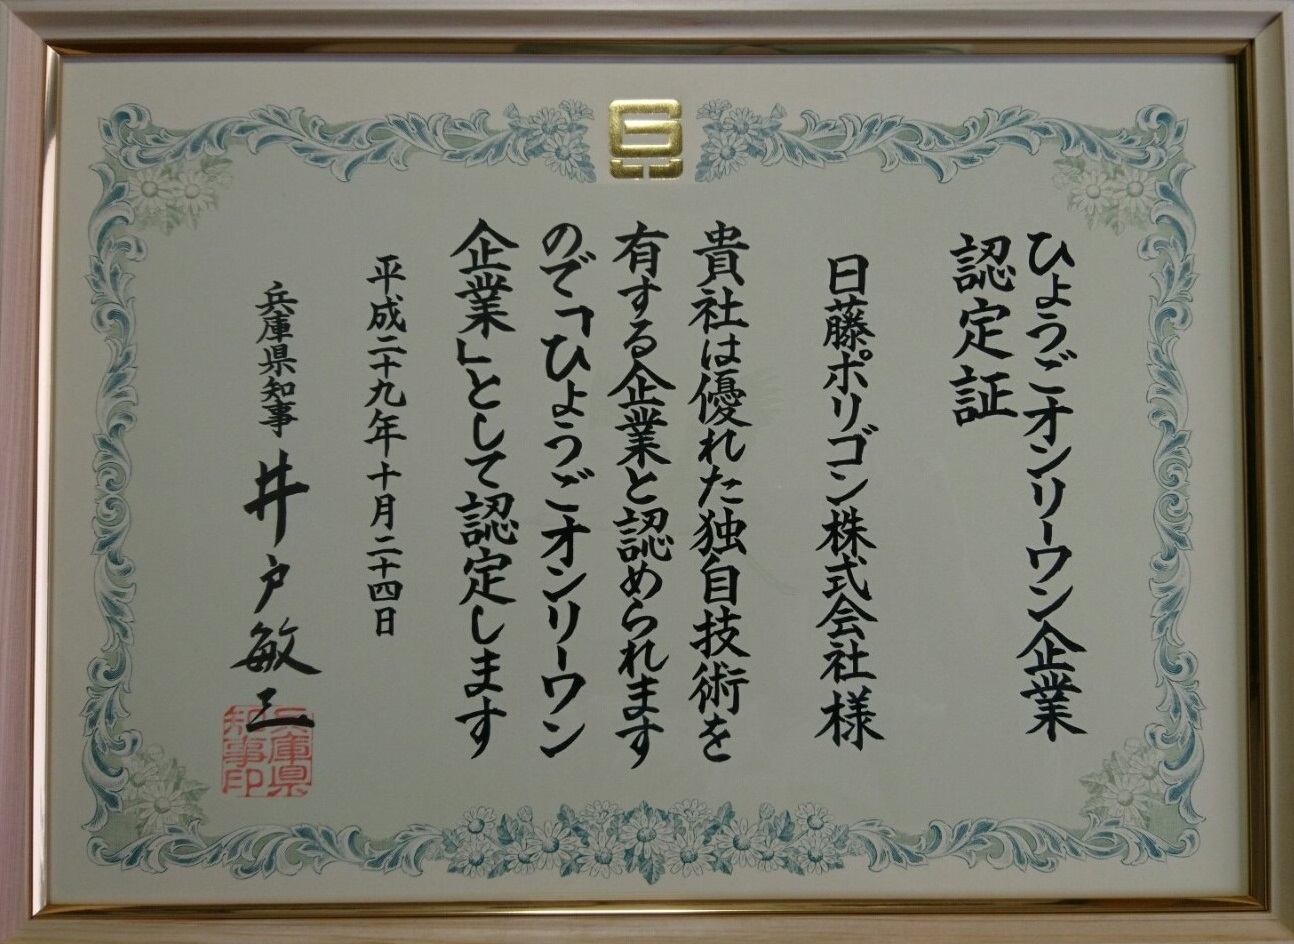 ひょうごオンリーワン企業
認定証
日藤ポリゴン株式会社様
貴社は優れた独自技術を
有する企業と認められます
ので「ひょうごオンリーワン
企業」として認定します
平成二十九年十月二十四日
兵庫県知事 井戸敏三
兵庫県
知事印